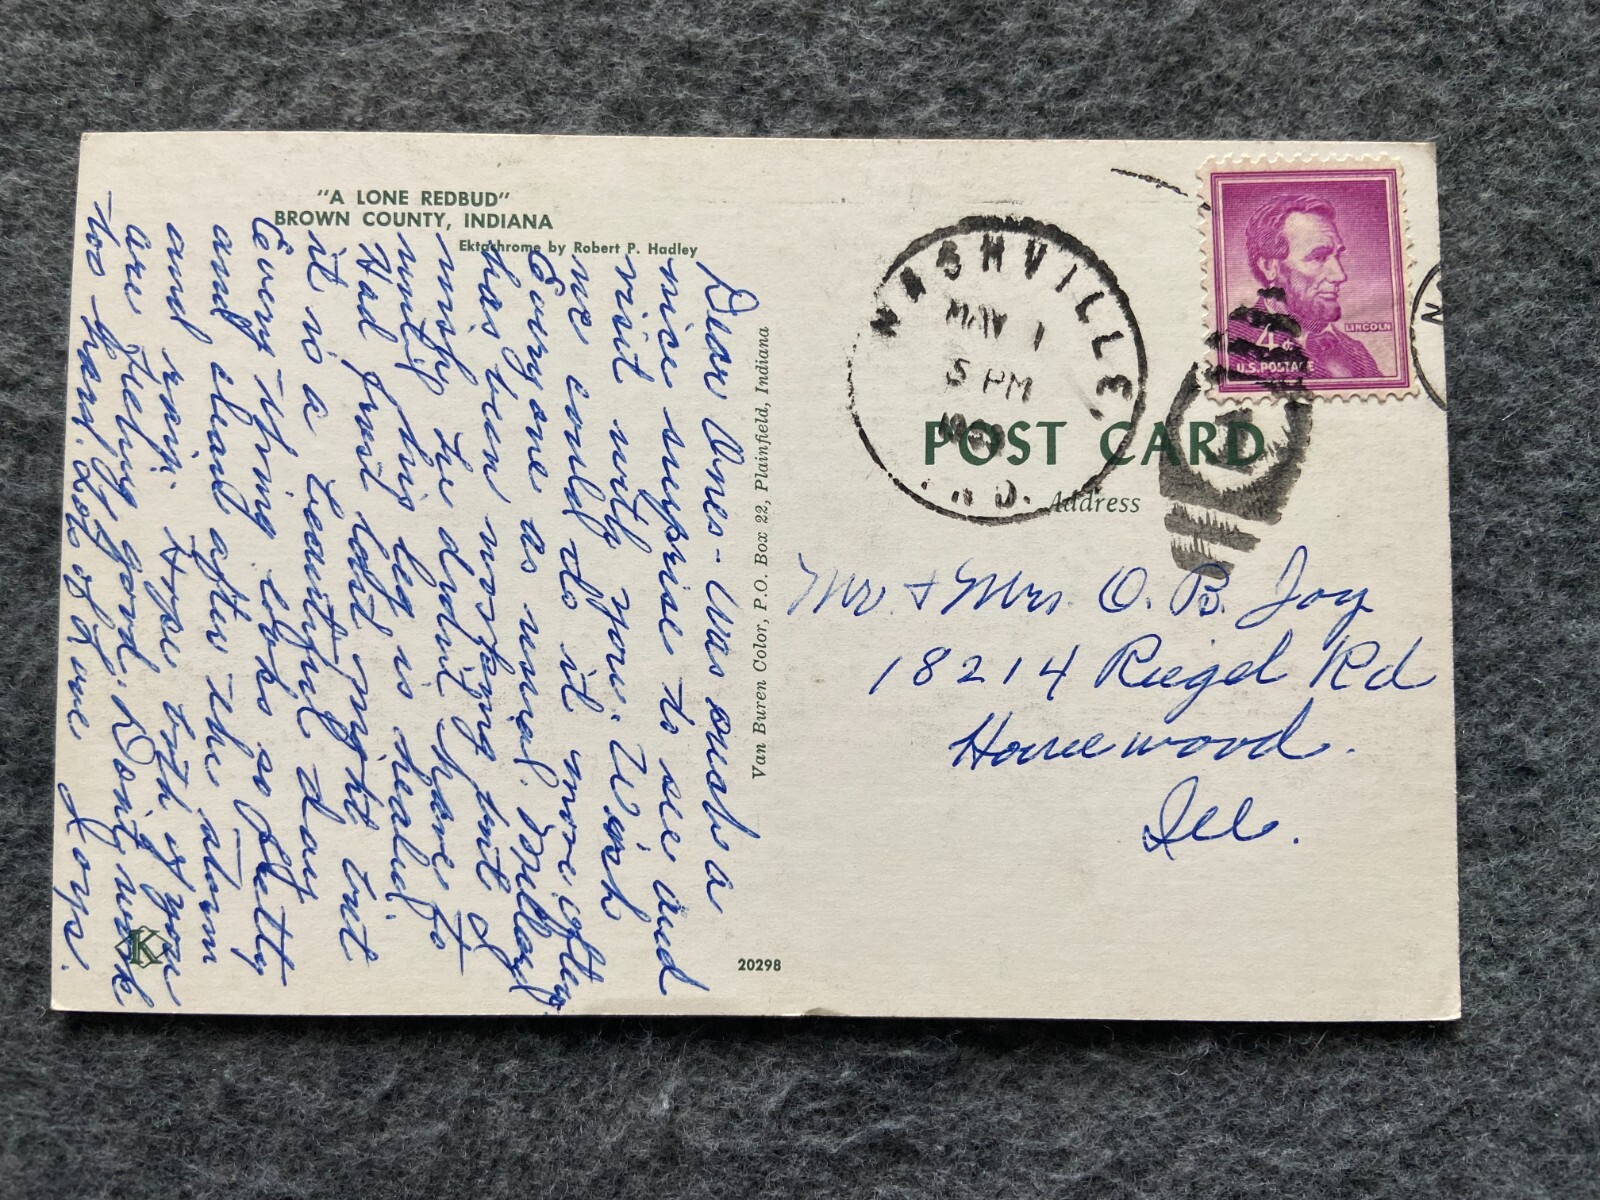 "A LONE REDBUD"
BROWN COUNTY, INDIANA
Ektachrome by Robert P. Hadley
Dear Ones - Was such a
nice surprise to see and
visit with you. Wish
we could do it more often.
Everyone as usual.
has been working but
mostly he don't have to
until his leg is healed
Had frost last night but
it is a beautiful day
Every thing looks so pretty
and clean after the storm
and rain. Hope both of you
are feeling good. Don't work
too hard. Lots of Love
Joys.
K
Van Buren Color, P.O. Box 22, Plainfield, Indiana
20298
NASHVILLE
MAY 1
5 PM
IND.
LINCOLN
4¢
U.S. POSTAGE
POST CARD
Address
Mr. & Mrs. O. B. Joy
18214 Riegel Rd
Homewood.
Ill.